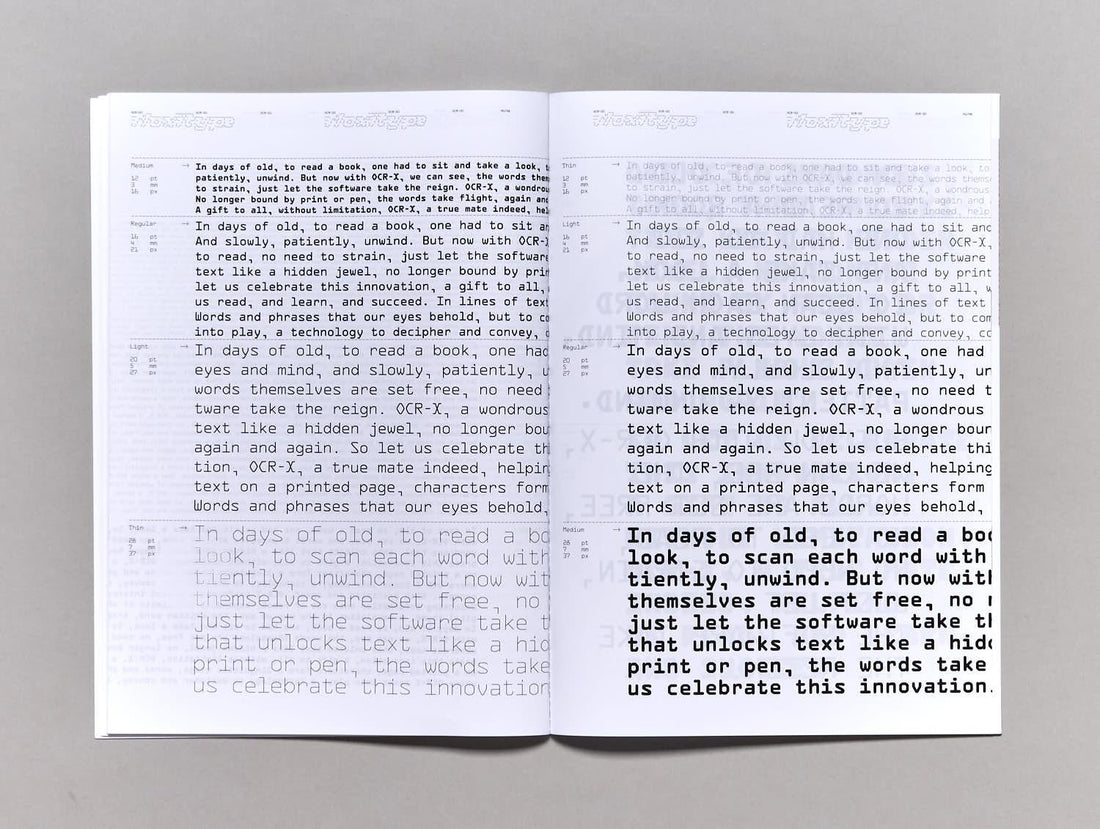 Maxitype Maxitype
Medium →
12 pt
3 mm
16 px
In days of old, to read a book, one had to sit and take a look,
patiently, unwind. But now with OCR-X, we can see, the words them
to strain, just let the software take the reign. OCR-X, a wondrou
No longer bound by print or pen, the words take flight, again and
A gift to all, without limitation, OCR-X, a true mate indeed, hel
Regular →
16 pt
4 mm
21 px
In days of old, to read a book, one had to sit an
And slowly, patiently, unwind. But now with OCR-X
to read, no need to strain, just let the software
text like a hidden jewel, no longer bound by prin
let us celebrate this innovation, a gift to all,
us read, and learn, and succeed. In lines of text
Words and phrases that our eyes behold, but to co
into play, a technology to decipher and convey,
Light →
20 pt
5 mm
27 px
In days of old, to read a book, one had
eyes and mind, and slowly, patiently, u
words themselves are set free, no need
tware take the reign. OCR-X, a wondrous
text like a hidden jewel, no longer bou
again and again. So let us celebrate th
tion, OCR-X, a true mate indeed, helpin
text on a printed page, characters form
Words and phrases that our eyes behold,
Thin →
28 pt
7 mm
37 px
In days of old, to read a bo
look, to scan each word with
tiently, unwind. But now wit
themselves are set free, no
just let the software take t
that unlocks text like a hid
print or pen, the words take
us celebrate this innovation
Maxitype Maxitype
Thin →
12 pt
3 mm
16 px
In days of old, to read a book, one had to sit and take a look, to
patiently, unwind. But now with OCR-X, we can see, the words thems
to strain, just let the software take the reign. OCR-X, a wondrous
No longer bound by print or pen, the words take flight, again and
A gift to all, without limitation, OCR-X, a true mate indeed, help
Light →
16 pt
4 mm
21 px
In days of old, to read a book, one had to sit and
And slowly, patiently, unwind. But now with OCR-X,
to read, no need to strain, just let the software
text like a hidden jewel, no longer bound by print
let us celebrate this innovation, a gift to all, w
us read, and learn, and succeed. In lines of text
Words and phrases that our eyes behold, but to com
into play, a technology to decipher and convey, co
Regular →
20 pt
5 mm
27 px
In days of old, to read a book, one had
eyes and mind, and slowly, patiently, un
words themselves are set free, no need t
tware take the reign. OCR-X, a wondrous
text like a hidden jewel, no longer boun
again and again. So let us celebrate thi
tion, OCR-X, a true mate indeed, helping
text on a printed page, characters form
Words and phrases that our eyes behold,
Medium →
28 pt
7 mm
37 px
In days of old, to read a boo
look, to scan each word with
tiently, unwind. But now with
themselves are set free, no n
just let the software take th
that unlocks text like a hidd
print or pen, the words take
us celebrate this innovation.